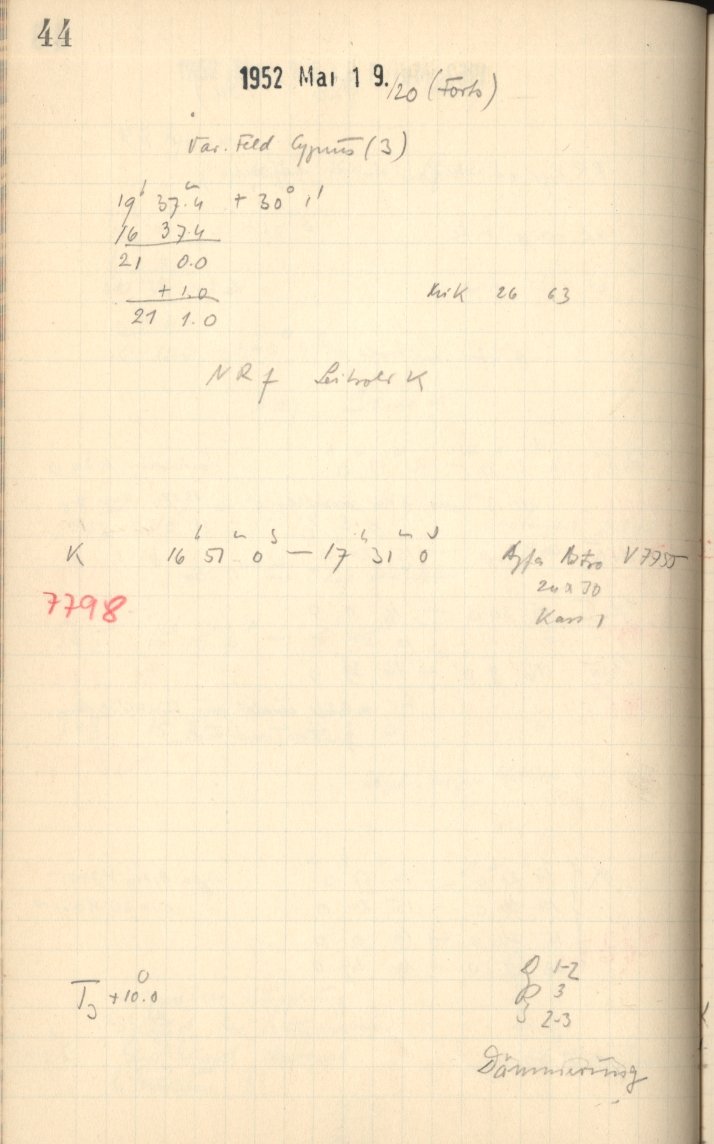 44
1952 Mai 19./20 (Forts)
Var. Feld Cygnus (3)
19h 37m.4 + 30° 1'
16 37.4
21 0.0
+ 1.0
21 1.0
Mik 26 63
NRf Leitrohr K
K 16h 51m 0s — 17h 31m 0s Agfa Astro V7755
24 x 30
7798
Kass 1
T_J +10°.0
D 1-2
R 3
S 2-3
Dämmerung